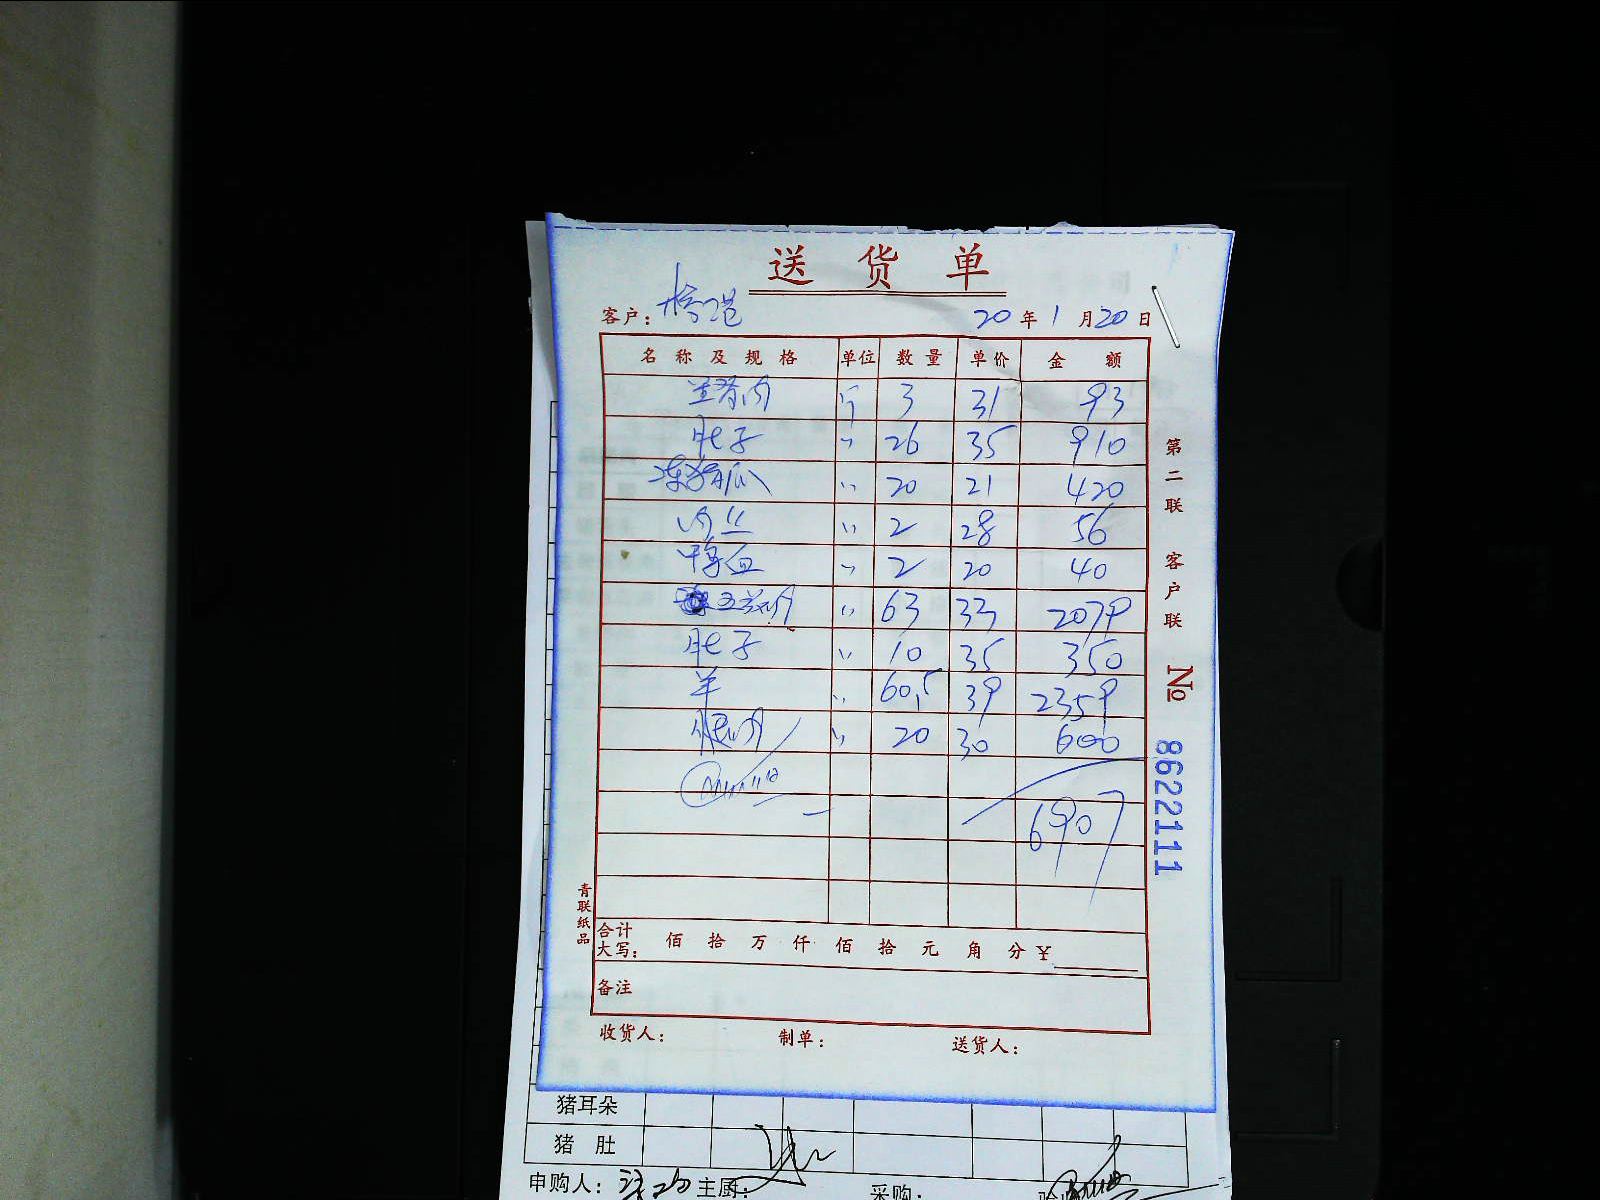 送货单
客户： 20年1月20日
名称及规格 单位 数量 单价 金额
里脊肉 斤 3 31 93
肚子 〃 26 35 910
冻猪爪 〃 20 21 420
肉丝 〃 2 28 56
〃 2 20 40
五花肉 〃 63 33 2079
肚子 〃 10 35 350
羊 〃 60.5 39 2359
〃 20 30 600
6907
合计大写： 佰 拾 万 仟 佰 拾 元 角 分 ¥
备注
收货人： 制单： 送货人：
第二联 客户联
No 8622111
青联纸品
猪耳朵
猪肚
申购人： 主厨： 采购：